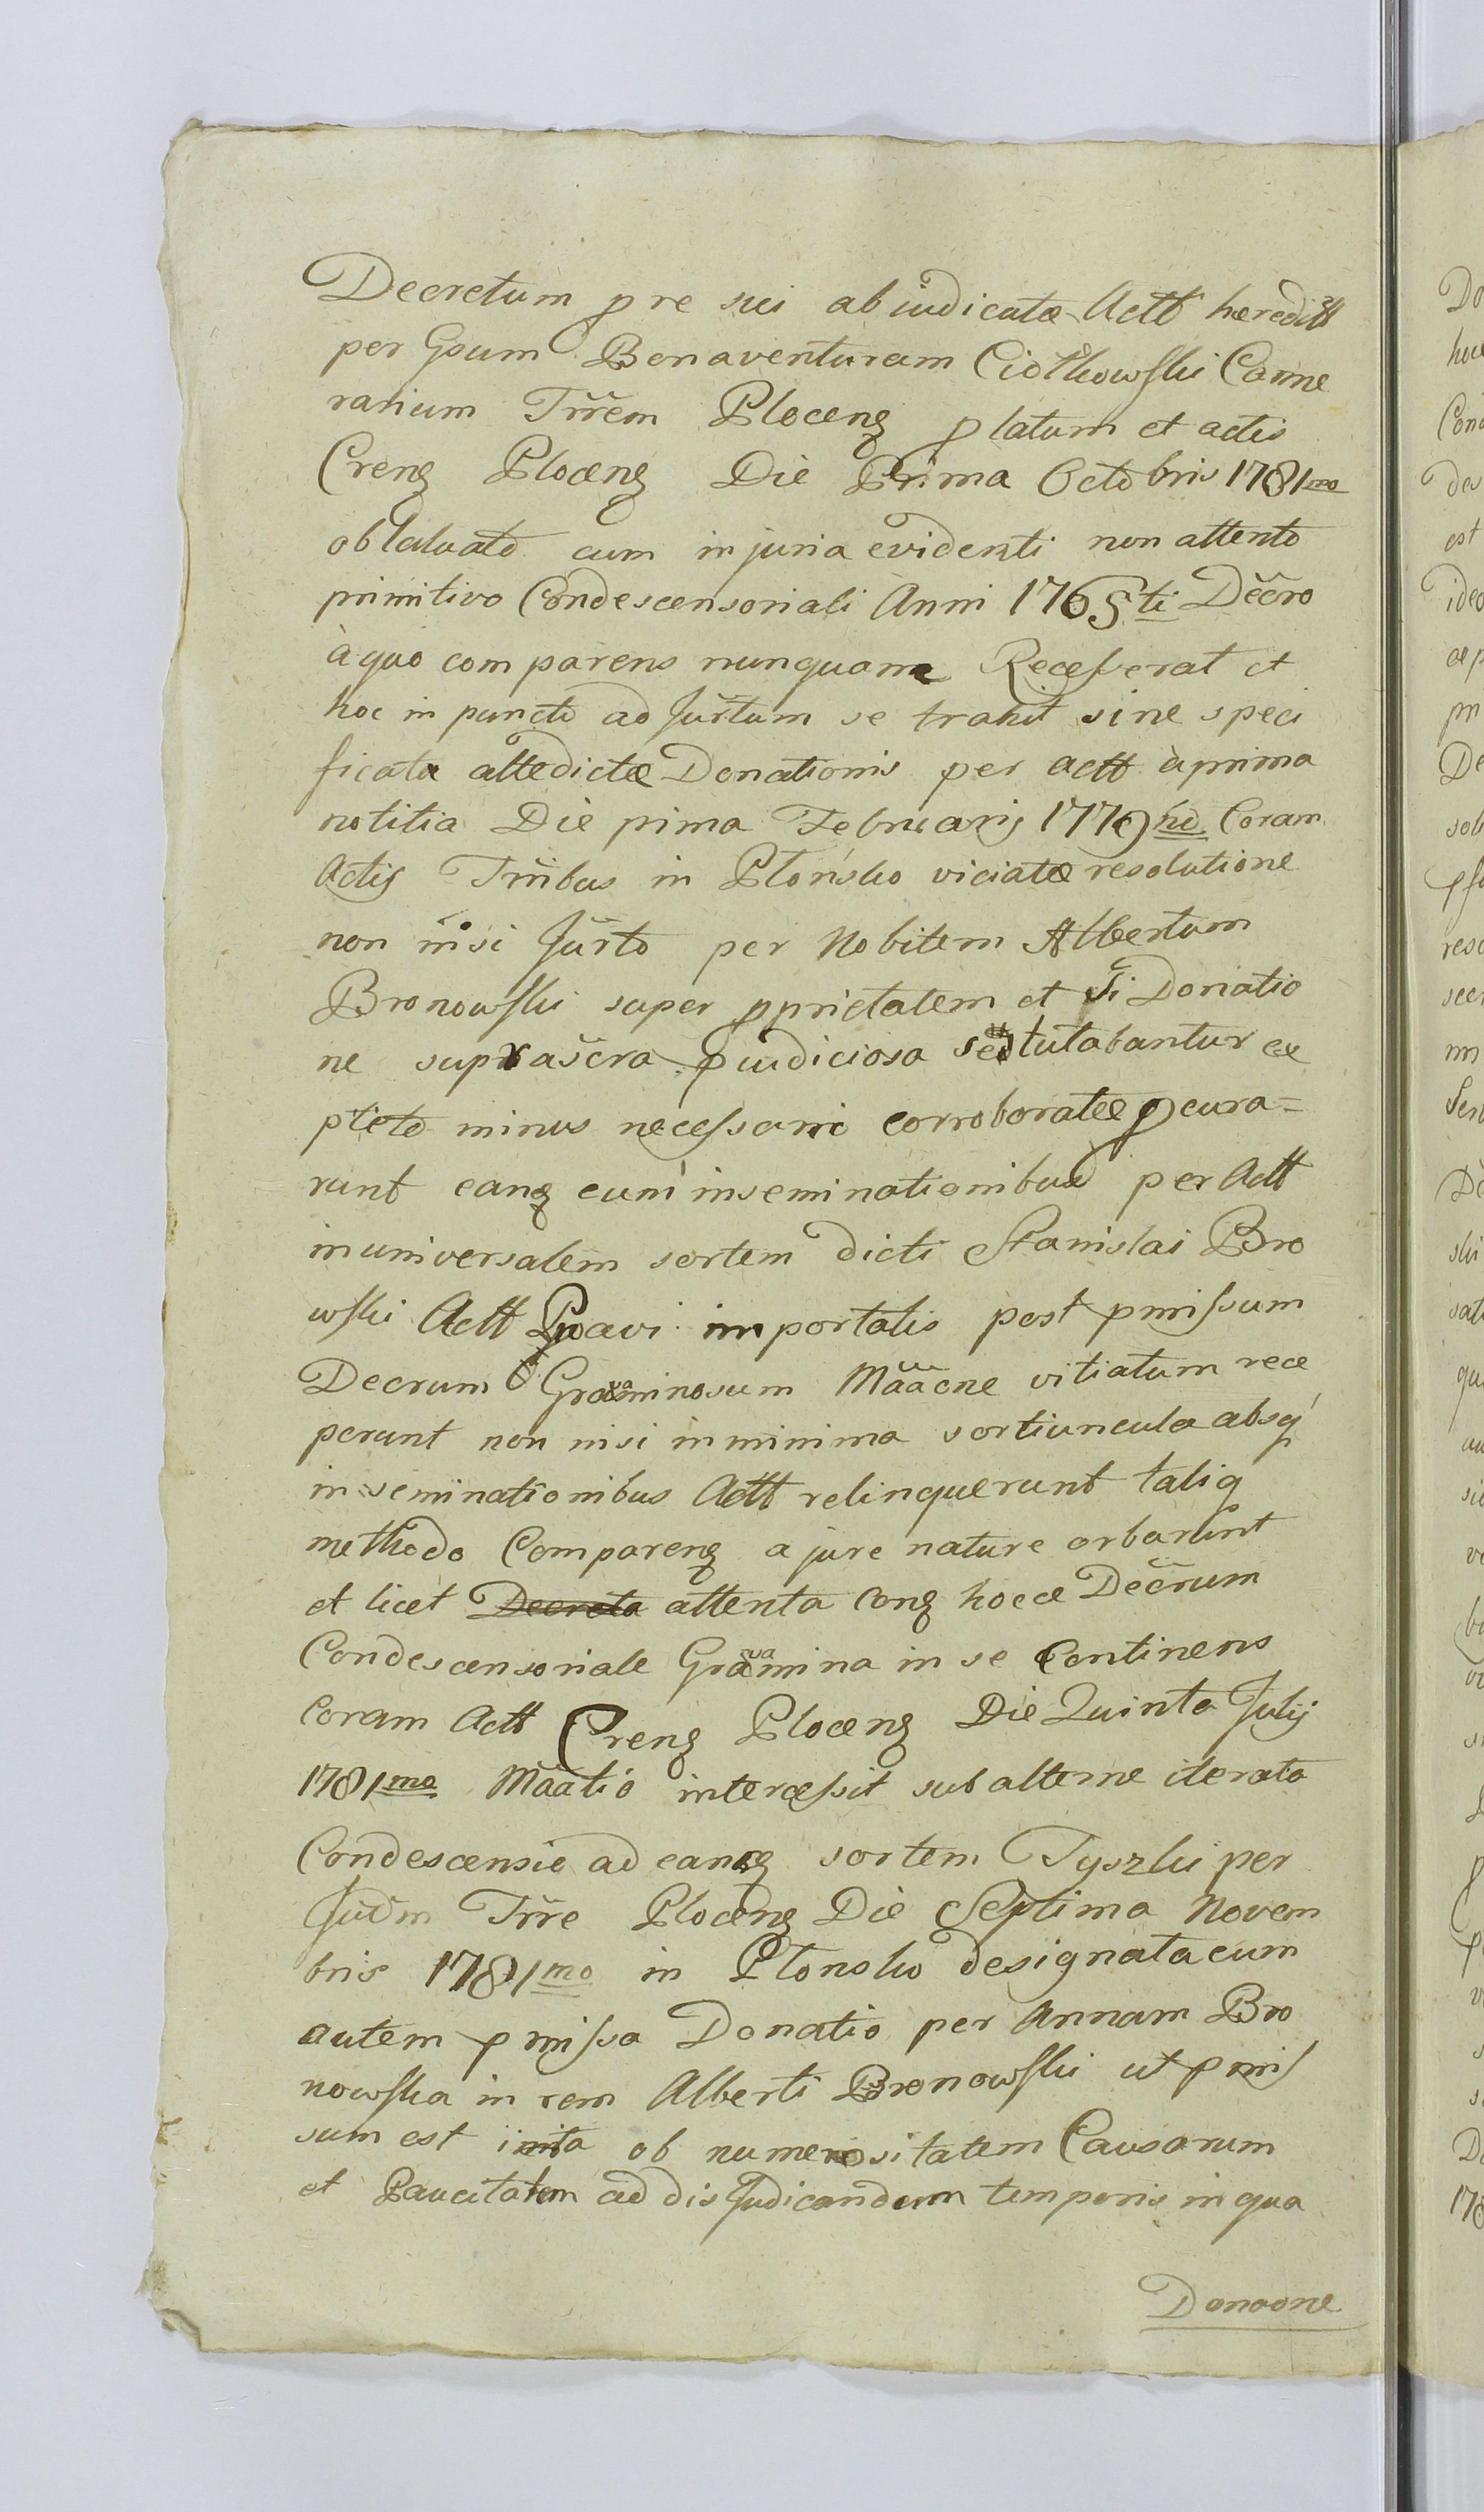 Decretum p re sui abiudicatæ Actt hæreditt
per Gsum Bonaventuram Ciółkowski Came
rarium Trrem Plocenq platum et actis
Crenq Plocenq Die Prima Octobris 1781mo
oblatuato cum injuria evidenti non attento
primitivo Condescensoriali Anni 1765ti Decro
à quo comparens nunquam Recesserat et
hoc in puncto ad Jurtum se trahit sine speci
ficata attedictæ Donationis per actt à prima
notitia Die pima Februarij 1779no Coram
Actis Trribus in Płońsko viciatæ resolutione
non nisi Jurto per Nobilem Albertum
Bronowski super pprietatem et Ti Donatio
ne suprascra pjudiciosa sed tutabantur ex
pleto minus necessarie corroboratæ pcura=
runt eanq cum inseminationibus per Actt
in universalem sortem dicti Stanislai Bro
wski Actt Proavi importatis post pmissum
Decrum Gravaminosum Maacne vitiatum rece
perunt non nisi in minima sortiuncula absq
inseminationibus Actt relinquerunt taliq
methodo Comparenq a jure nature orbarunt
et licet Decreta attenta conq hocce Decrum
Condescensoriale Gravamina in se Continens
Coram Actt Crenq Plocenq Die Quinta Julij
1781mo Maatio intercessit subalterne iterata
Condescensio ad eanq sortem Tyszki per
Judm Trre Plocenq Die Septima Novem
bris 1781mo in Płonsko designata cum
autem pmissa Donatio per Annam Bro
nowska in rem Alberti Bronowski ut pmis
sum est inita ob numerositatem Causarum
et Paucitatem ad disjudicandum temporis in qua
Donaone
Do
hoc
Con
des
est
ideo